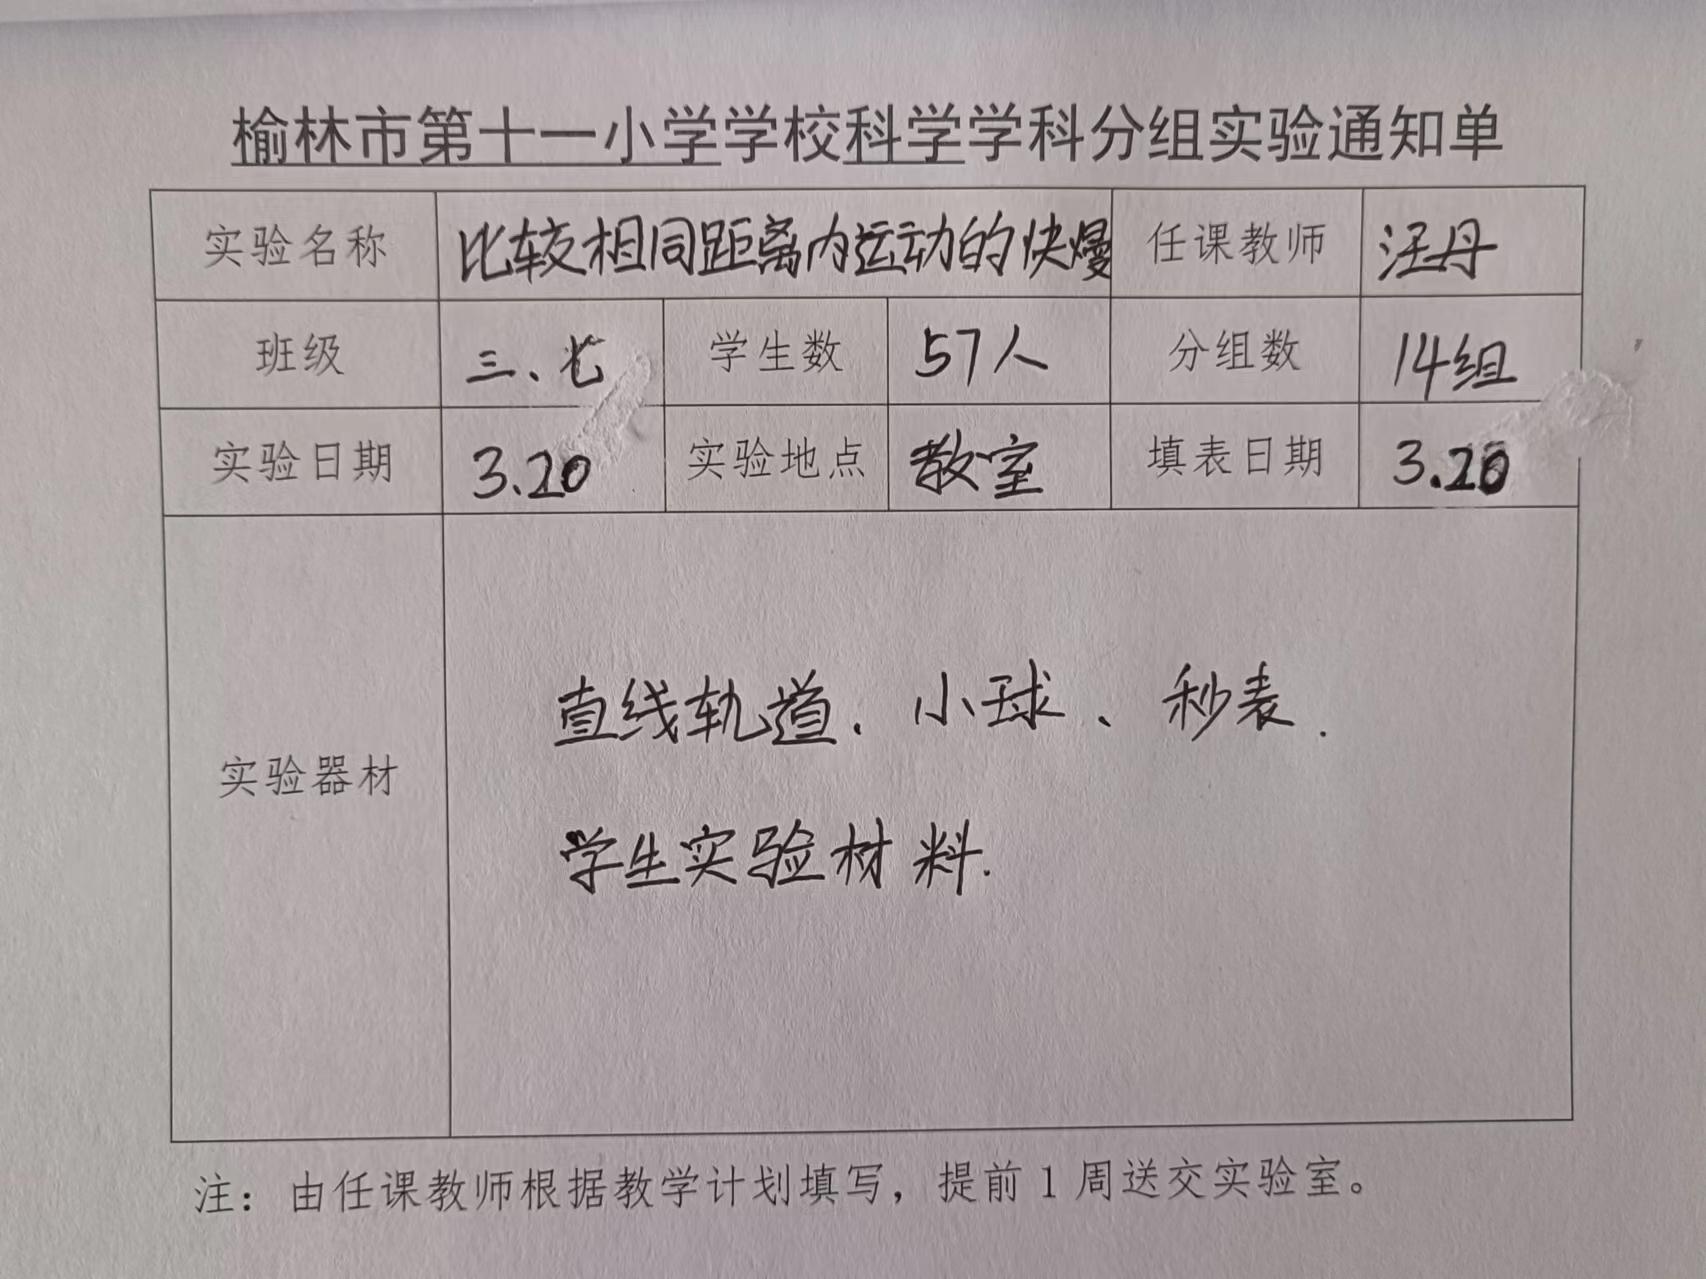 榆林市第十一小学学校科学学科分组实验通知单
实验名称 比较相同距离内运动的快慢 任课教师 汪丹
班级 三、七 学生数 57人 分组数 14组
实验日期 3.20 实验地点 教室 填表日期 3.20
直线轨道、小球、秒表.
实验器材
学生实验材料.
注：由任课教师根据教学计划填写，提前1周送交实验室。